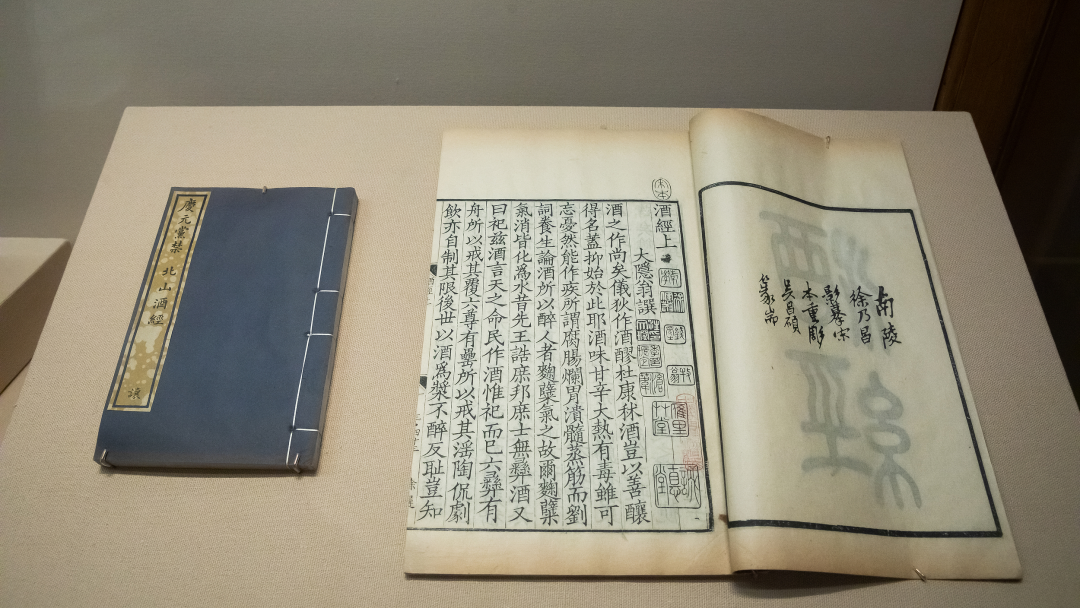 慶元黨禁
北山酒經
南陵
徐乃昌
影摹宋
本重彫
吳昌碩
篆耑
宋本
酒經上
大隱翁撰
酒之作尚矣儀狄作酒醪杜康秫酒豈以善釀
得名蓋抑始於此耶酒味甘辛大熱有毒雖可
忘憂然能作疾所謂腐腸爛胃潰髓蒸筋而劉
詞養生論酒所以醉人者麴糱氣之故爾麴糱
氣消皆化為水昔先王誥庶邦庶士無彝酒又
曰祀茲酒言天之命民作酒惟祀而已六彝有
舟所以戒其覆六尊有罍所以戒其淫陶侃劇
飲亦自制其限後世以酒為漿不醉反恥豈知